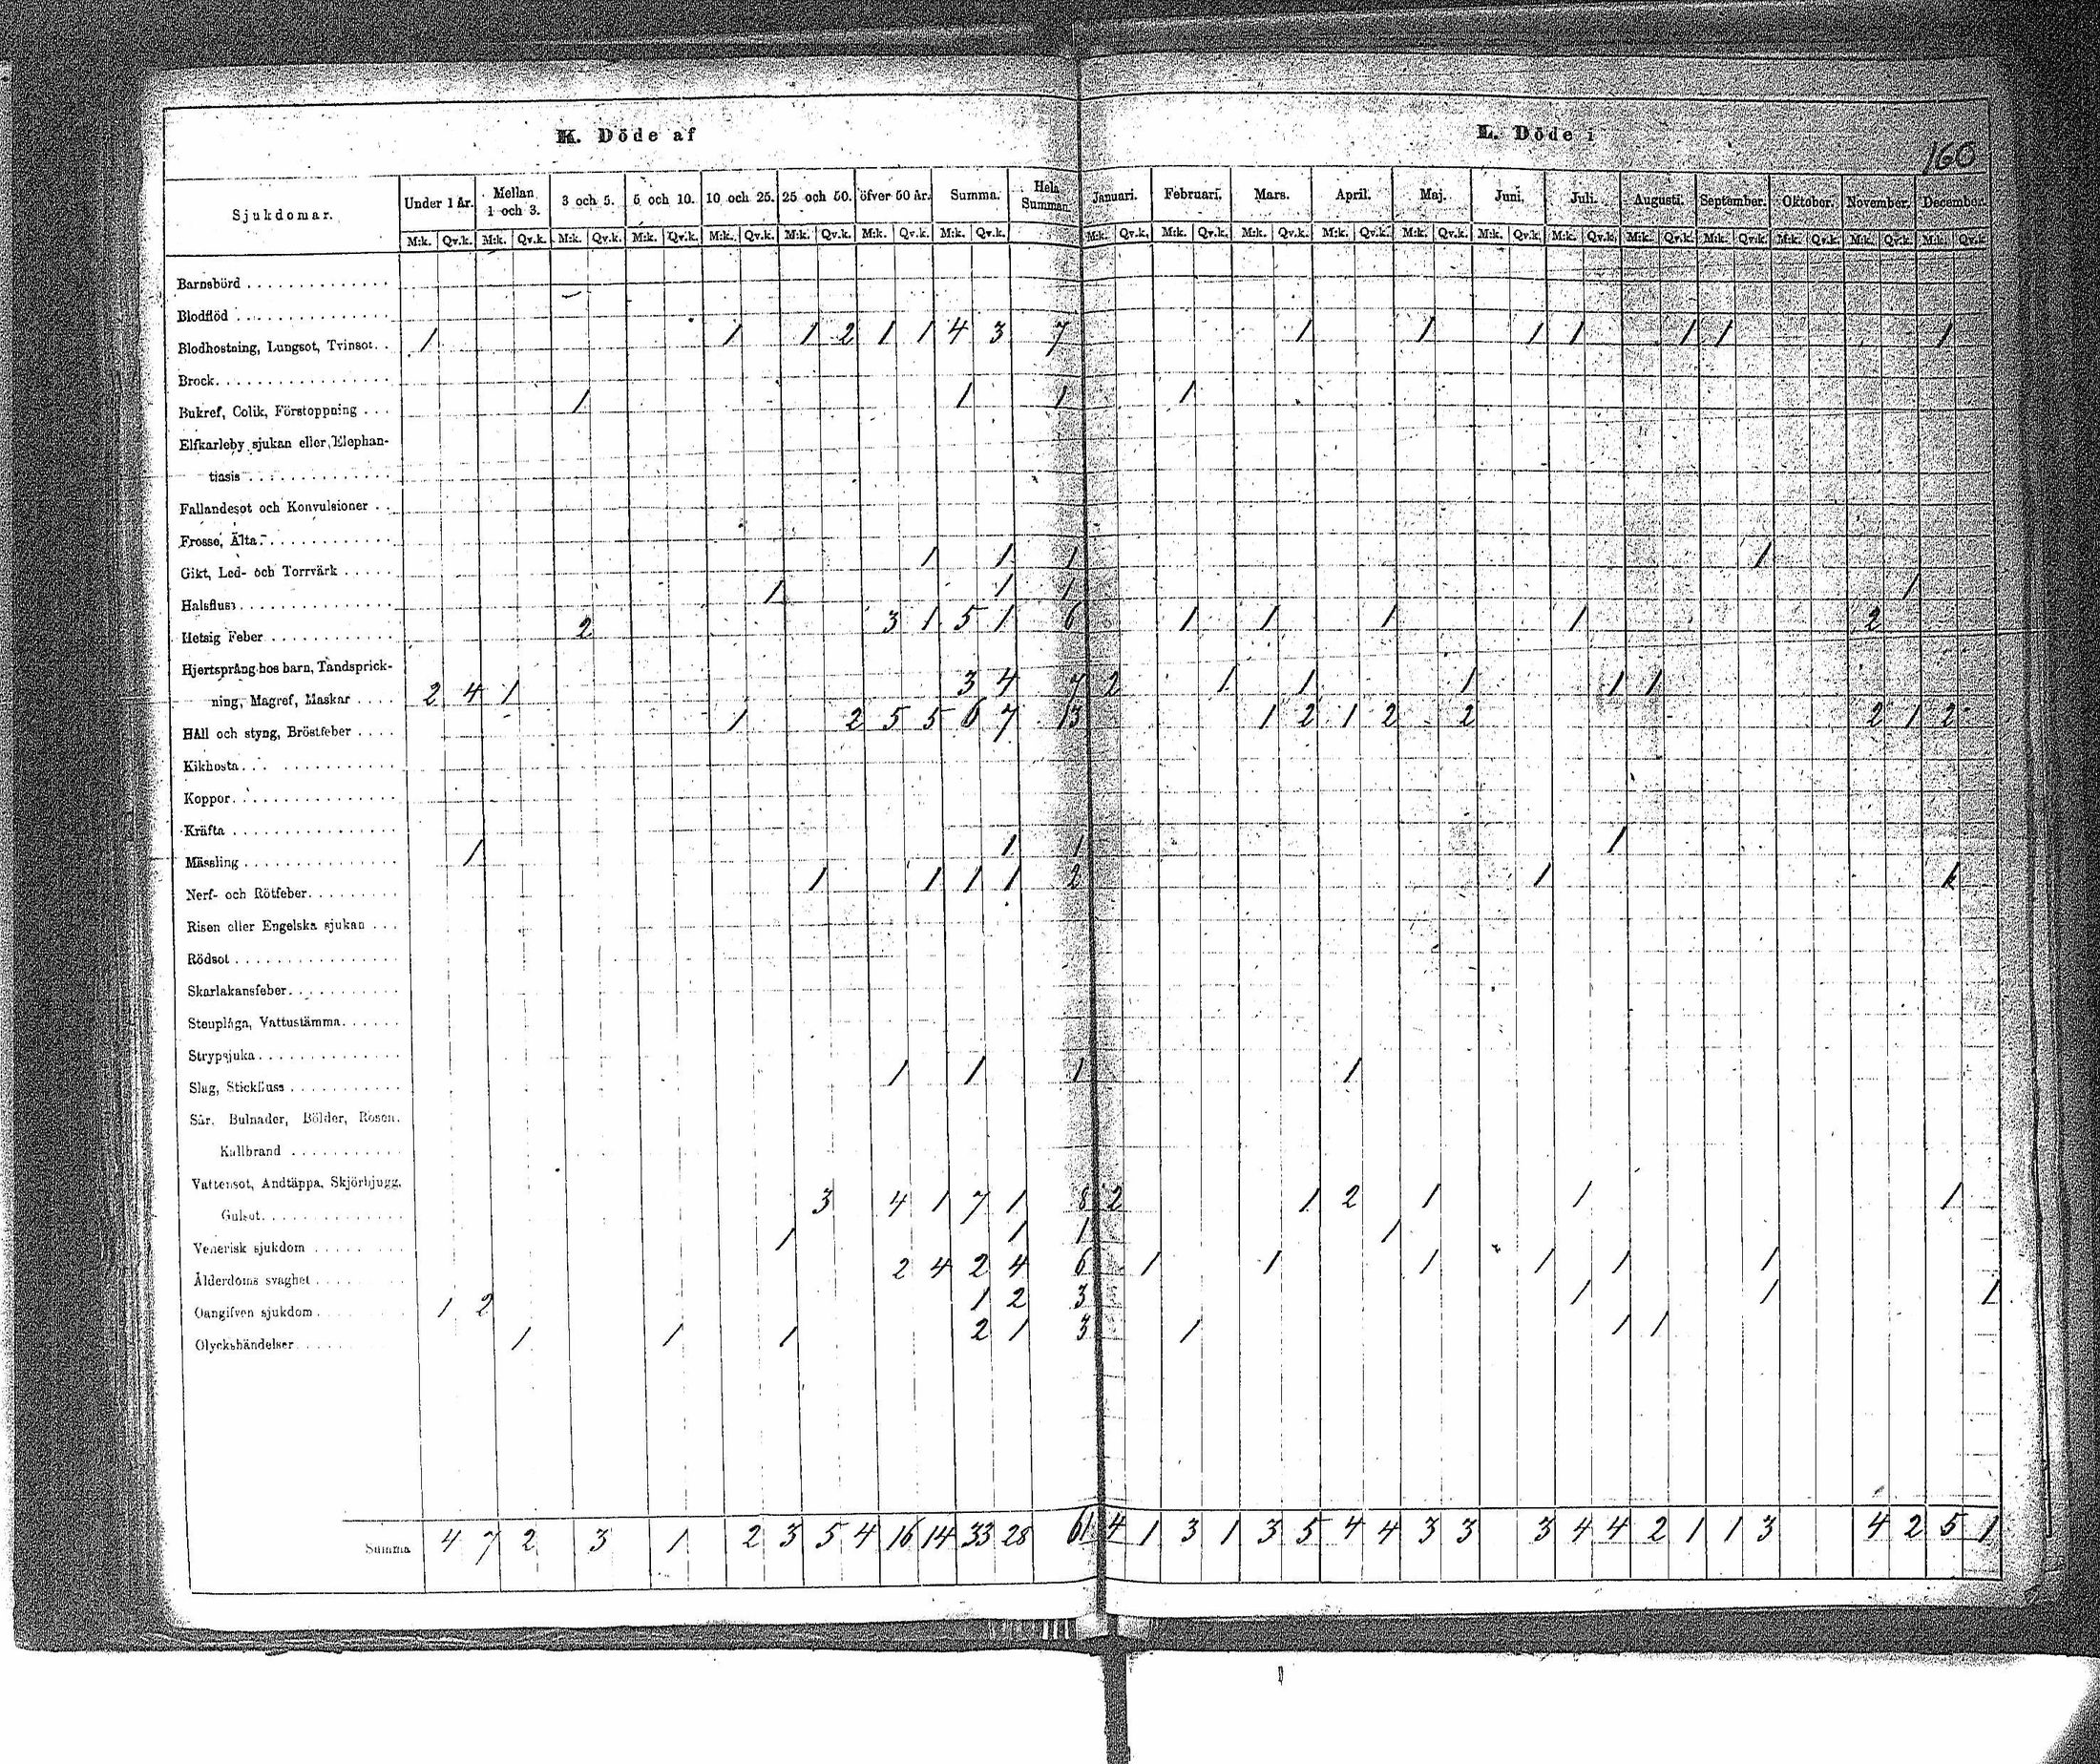 K. Döde af
L. Döde i
160
Sjukdomar. Under 1 år. Mellan 1 och 3. 3 och 5. 5 och 10. 10 och 25. 25 och 50. öfver 50 år. Summa. Hela Summan. Januari. Februari. Mars. April. Maj. Juni. Juli. Augusti. September. Oktober. November. December.
M:k. Qv.k. M:k. Qv.k. M:k. Qv.k. M:k. Qv.k. M:k. Qv.k. M:k. Qv.k. M:k. Qv.k. M:k. Qv.k. M:k. Qv.k. M:k. Qv.k. M:k. Qv.k. M:k. Qv.k. M:k. Qv.k. M:k. Qv.k. M:k. Qv.k. M:k. Qv.k. M:k. Qv.k. M:k. Qv.k. M:k. Qv.k. M:k. Qv.k.
Barnsbörd
Blodflöd
Blodhostning, Lungsot, Tvinsot. 1 1 1 2 1 1 4 3 7 1 1 1 1 1 1 1
Brock
Bukref, Colik, Förstoppning 1 1 1 1
Elfkarleby sjukan eller Elephan-
tiasis
Fallandesot och Konvulsioner
Frosse, Älta
Gikt, Led- och Torrvärk 1 1 1 1
Halsfluss 1 1 1 1
Hetsig Feber 2 3 1 5 1 6 1 1 1 1 2
Hjertsprång hos barn, Tandsprick-
ning, Magref, Maskar 2 4 1 3 4 7 2 1 1 1 1 1
Håll och styng, Bröstfeber 1 2 5 5 6 7 13 1 2 1 2 2 2 1 2
Kikhosta
Koppor
Kräfta
Mässling 1 1 1 1
Nerf- och Rötfeber 1 1 1 1 2 1 1
Risen eller Engelska sjukan
Rödsot
Skarlakansfeber
Stenplåga, Vattustämma
Strypsjuka
Slag, Stickfluss 1 1 1 1
Sår, Bulnader, Bölder, Rosen,
Kallbrand
Vattensot, Andtäppa, Skjörbjugg,
Gulsot 3 4 1 7 1 8 2 1 2 1 1 1
Venerisk sjukdom 1 1 1 1
Ålderdoms svaghet 2 4 2 4 6 1 1 1 1 1 1
Oangifven sjukdom 1 2 1 2 3 1 1 1
Olyckshändelser 1 1 1 2 1 3 1 1 1
Summa 4 7 2 3 1 2 3 5 4 16 14 33 28 61 4 1 3 1 3 5 4 4 3 3 3 4 4 2 1 1 3 4 2 5 1